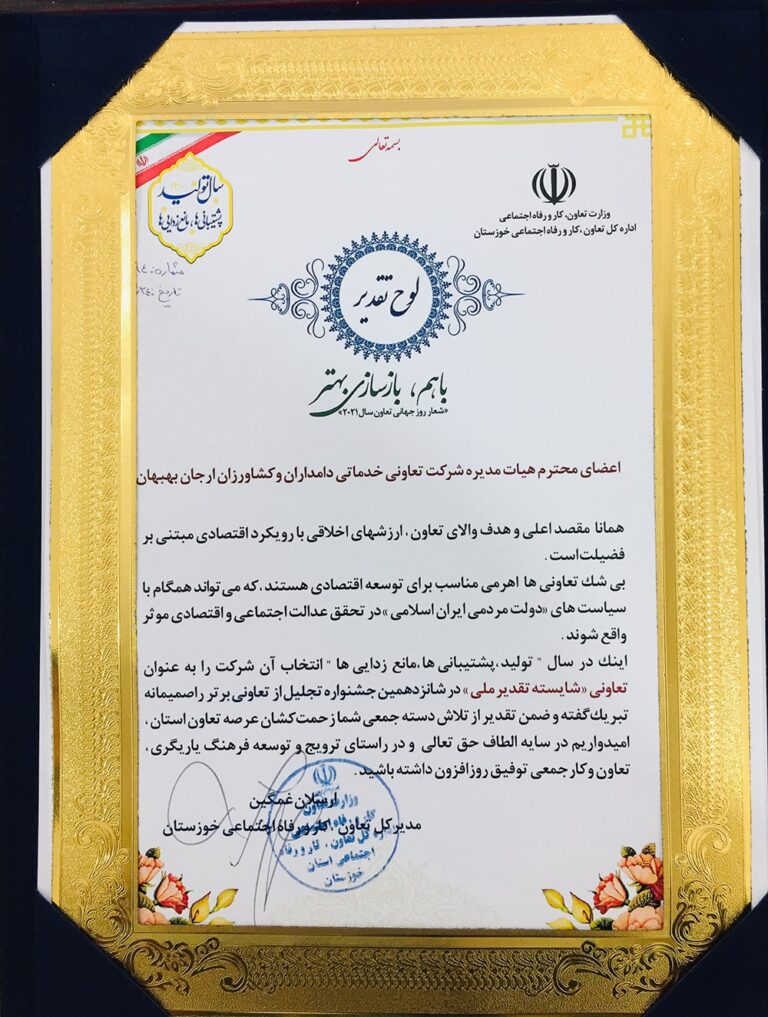 بسمه تعالی
وزارت تعاون، کار و رفاه اجتماعی
اداره کل تعاون، کار و رفاه اجتماعی خوزستان
سال تولید
۱۴۰۰
پشتیبانی‌ها، مانع زدایی‌ها
شماره:
تاریخ:
لوح تقدیر
باهم، بازسازی بهتر
«شعار روز جهانی تعاون سال ۲۰۲۱»
اعضای محترم هیات مدیره شرکت تعاونی خدماتی دامداران و کشاورزان ارجان بهبهان
همانا مقصد اعلی و هدف والای تعاون، ارزشهای اخلاقی با رویکرد اقتصادی مبتنی بر
فضیلت است.
بی شك تعاونی ها اهرمی مناسب برای توسعه اقتصادی هستند، که می تواند همگام با
سیاست های «دولت مردمی ایران اسلامی» در تحقق عدالت اجتماعی و اقتصادی موثر
واقع شوند.
اینك در سال " تولید، پشتیبانی ها، مانع زدایی ها " انتخاب آن شرکت را به عنوان
تعاونی «شایسته تقدیر ملی» در شانزدهمین جشنواره تجلیل از تعاونی برتر راصمیمانه
تبریك گفته و ضمن تقدیر از تلاش دسته جمعی شما زحمت کشان عرصه تعاون استان،
امیدواریم در سایه الطاف حق تعالی و در راستای ترویج و توسعه فرهنگ یاریگری،
تعاون و کار جمعی توفیق روزافزون داشته باشید.
ارسلان غمگین
مدیرکل تعاون، کار و رفاه اجتماعی خوزستان
وزارت تعاون
کار و رفاه اجتماعی
اداره کل تعاون، کار و رفاه
اجتماعی استان
خوزستان